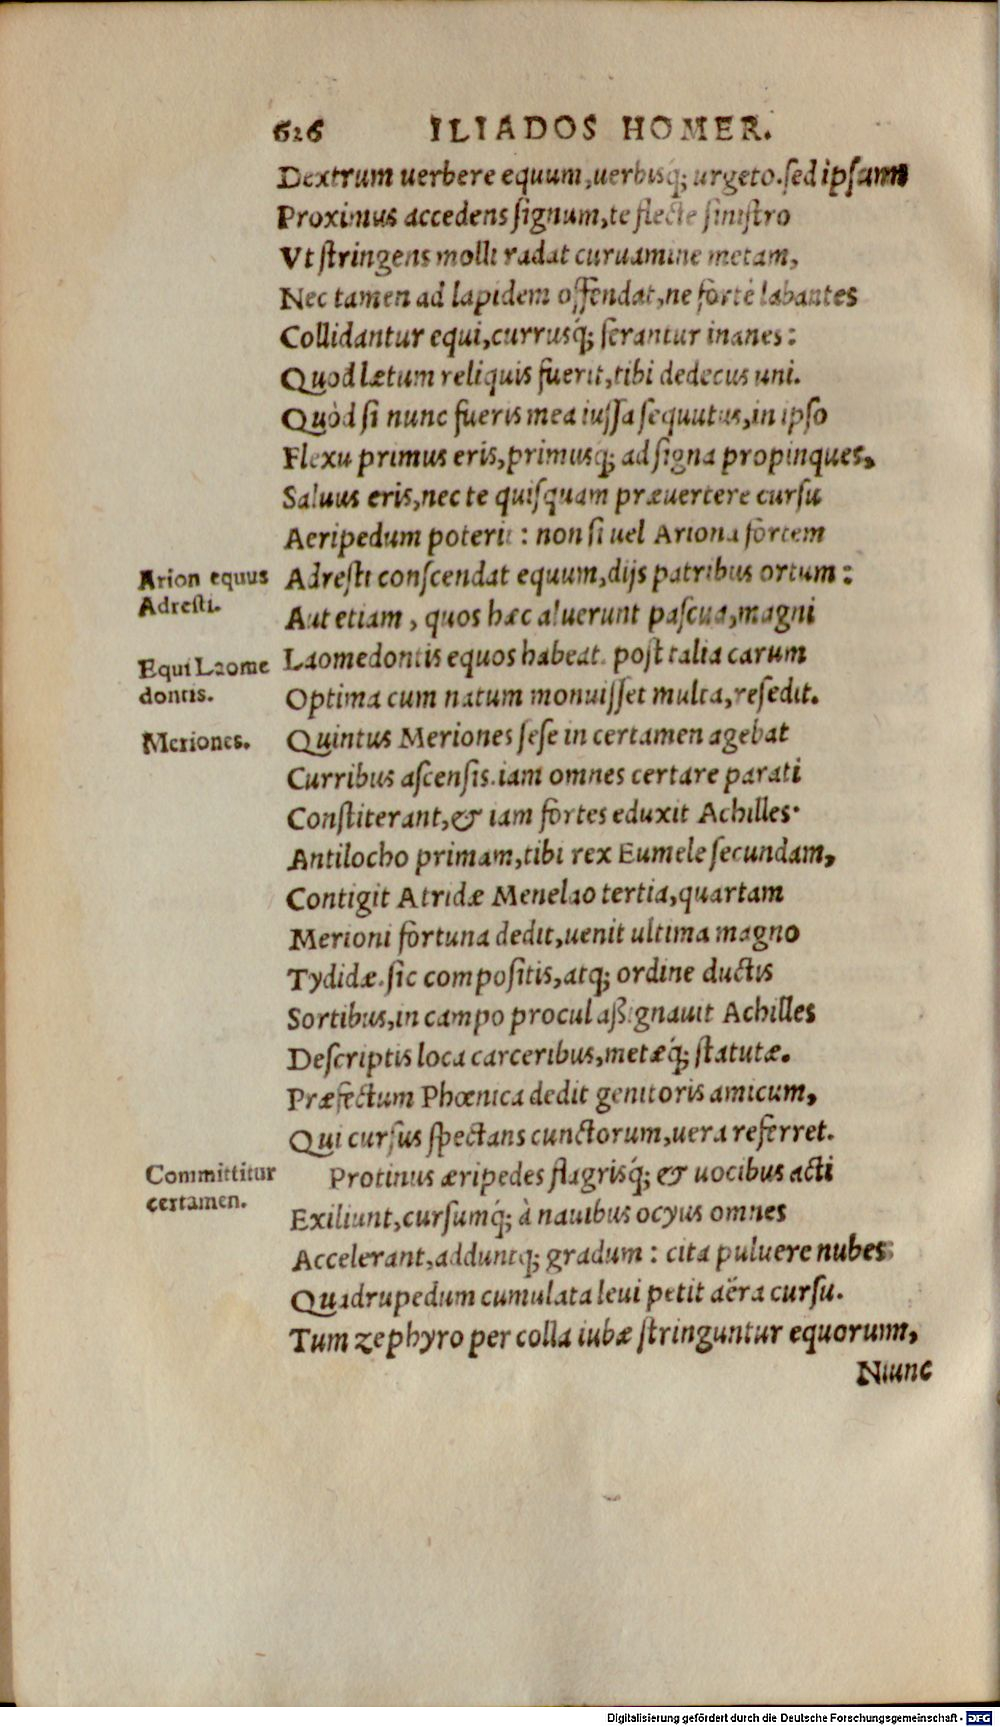 626 ILIADOS HOMER.
Dextrum uerbere equum,uerbisq́; urgeto.sed ipsum
Proximus accedens signum,te flecte sinistro
Vt stringens molli radat curuamine metam,
Nec tamen ad lapidem offendat,ne fortè labantes
Collidantur equi,currusq́; ferantur inanes:
Quod lætum reliquis fuerit,tibi dedecus uni.
Quòd si nunc fueris mea iussa sequutus,in ipso
Flexu primus eris,primusq; ad signa propinques,
Saluus eris,nec te quisquam præuertere cursu
Aeripedum poterit : non si uel Ariona fortem
Arion equus
Adresti.
Adresti conscendat equum,dijs patribus ortum :
Aut etiam , quos hæc aluerunt pascua,magni
Equi Laome
dontis.
Laomedontis equos habeat. post talia carum
Optima cum natum monuisset multa,resedit.
Meriones.
Quintus Meriones sese in certamen agebat
Curribus ascensis.iam omnes certare parati
Constiterant,& iam sortes eduxit Achilles·
Antilocho primam,tibi rex Eumele secundam,
Contigit Atridæ Menelao tertia,quartam
Merioni fortuna dedit,uenit ultima magno
Tydidæ.sic compositis,atq; ordine ductis
Sortibus,in campo procul aßignauit Achilles
Descriptis loca carceribus,metæq́; statutæ.
Præfectum Phœnica dedit genitoris amicum,
Qui cursus spectans cunctorum,uera referret.
Committitur
certamen.
Protinus æripedes flagrisq́; & uocibus acti
Exiliunt,cursumq́; à nauibus ocyus omnes
Accelerant,adduntq; gradum : cita puluere nubes
Quadrupedum cumulata leui petit aëra cursu.
Tum zephyro per colla iubæ stringuntur equorum,
Nunc
Digitalisierung gefördert durch die Deutsche Forschungsgemeinschaft - DFG